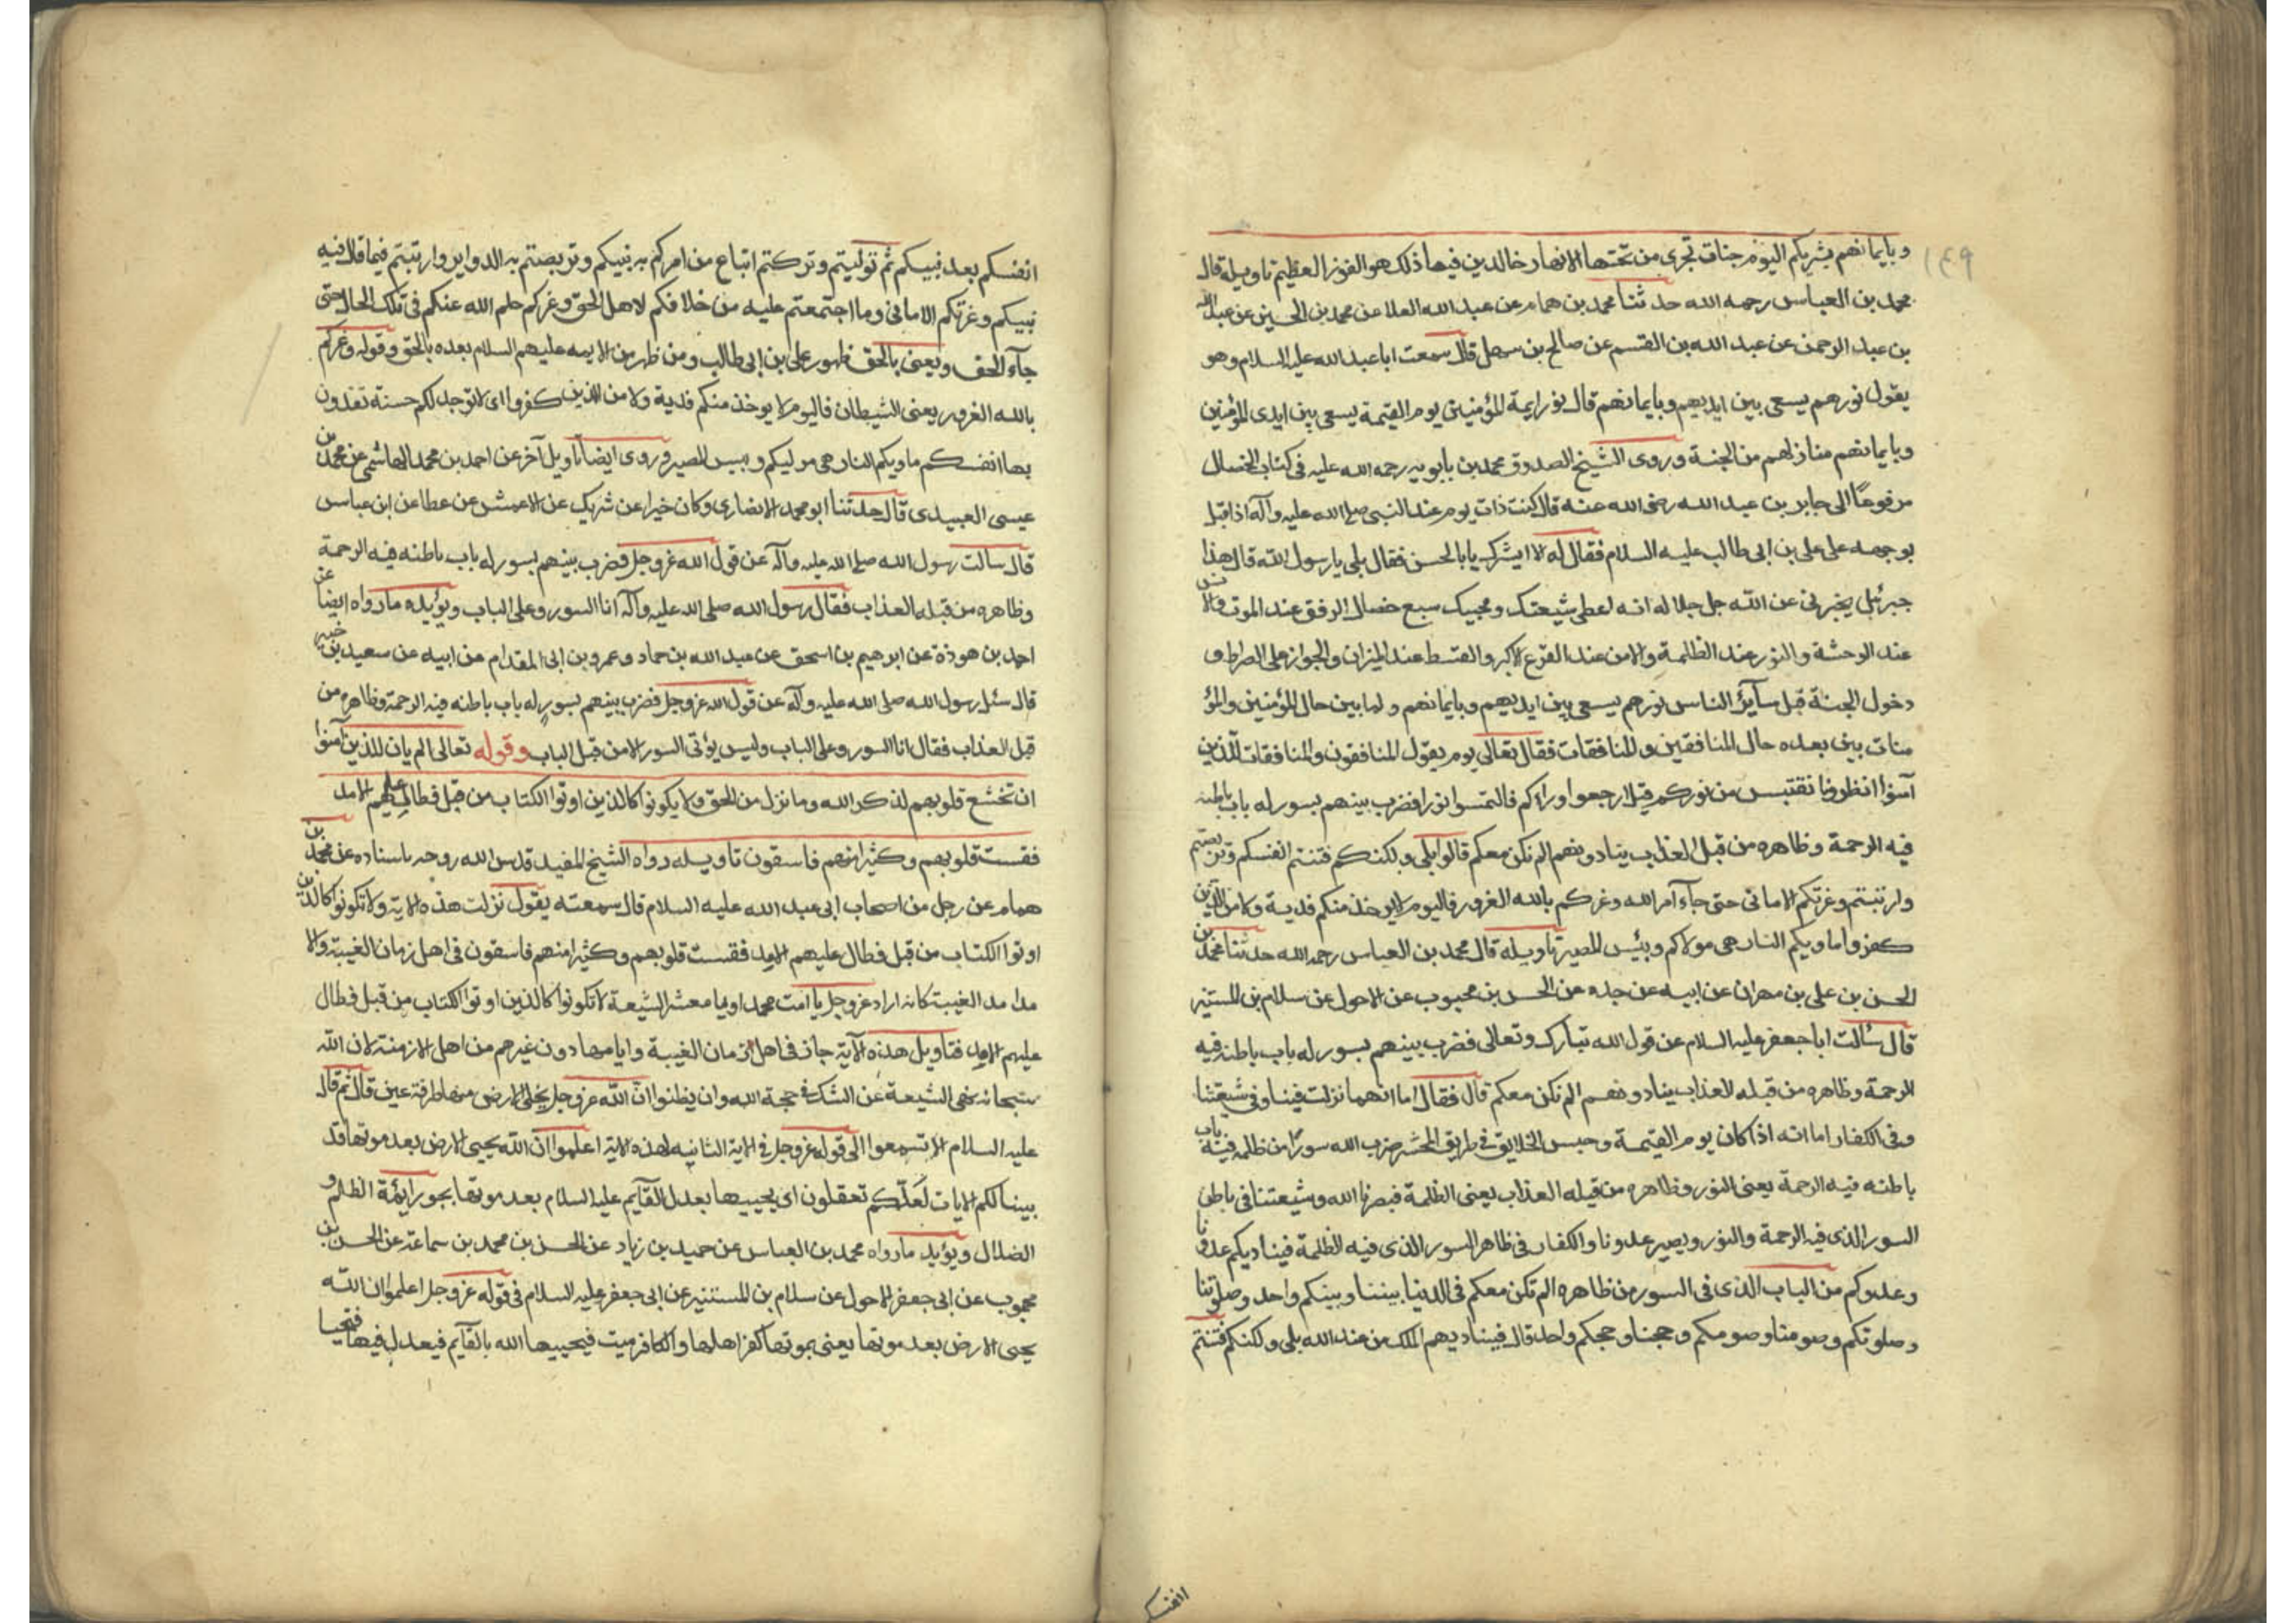 ١٤٩
وبايمانهم بشريكم اليوم جنات تجرى من تحتها الانهار خالدين فيها ذلك هو الفوز العظيم تاويله قال
محمد بن العباس رحمه الله حدثنا محمد بن همام عن عبد الله العلا عن محمد بن الحسين عن عبد الله
بن عبد الرحمن عن عبد الله بن القسم عن صالح بن سهل قال سمعت ابا عبد الله عليه السلام وهو
يقول نورهم يسعى بين ايديهم وبايمانهم قال نور ايمة المؤمنين يوم القيمة يسعى بين ايدى المؤمنين
وبايمانهم منازلهم من الجنة وروى الشيخ الصدوق محمد بن بابويه رحمه الله عليه فى كتاب الخصال
مرفوعًا الى جابر بن عبد الله رضى الله عنه قال كنت ذات يوم عند النبى صلى الله عليه وآله اذ اقبل
بوجهه على على بن ابى طالب عليه السلام فقال له الا ابشرك يا ابا الحسن فقال بلى يا رسول الله قال هذا
جبرئيل يخبرنى عن الله جل جلاله انه اعطى شيعتك ومحبيك سبع خصال الرفق عند الموت والانس
عند الوحشة والنور عند الظلمة والامن عند الفزع الاكبر والقسط عند الميزان والجواز على الصراط و
دخول الجنة قبل سآير الناس نورهم يسعى بين ايديهم وبايمانهم ولما بين حال المؤمنين والمؤ
منات بين بعده حال المنافقين والمنافقات فقال تعالى يوم يقول المنافقون والمنافقات للذين
آمنوا انظرونا نقتبس من نوركم قيل ارجعوا وراءكم فالتمسوا نورا فضرب بينهم بسور له باب باطنه
فيه الرحمة وظاهره من قبل العذاب ينادونهم الم نكن معكم قالوا بلى ولكنكم فتنتم انفسكم وتربصتم
وارتبتم وغرتكم الامانى حتى جآء امر الله وغركم بالله الغرور فاليوم لا يوخذ منكم فدية ولا من الذين
كفروا ماويكم النار هى مولاكم وبئس المصير تاويله قال محمد بن العباس رحمه الله حدثنا محمد بن
الحسن بن على بن مهران عن ابيه عن جده عن الحسن بن محبوب عن الاحول عن سلام بن المستنير
قال سئالت ابا جعفر عليه السلام عن قول الله تبارك وتعالى فضرب بينهم بسور له باب باطنه فيه
الرحمة وظاهره من قبله العذاب ينادونهم الم نكن معكم قال فقال اما انهما نزلت فينا وفى شيعتنا
وفى الكفار اما انه اذا كان يوم القيمة وحبس الخلايق فى طريق المحشر ضرب الله سورًا من ظلمه فيه باب
باطنه فيه الرحمة يعنى النور وظاهره من قبله العذاب يعنى الظلمة فيصيرنا الله وشيعتنا فى باطن
السور الذى فيه الرحمة والنور ويصير عدونا والكفار فى ظاهر السور الذى فيه الظلمة فيناديكم عدونا
وعدوكم من الباب الذى فى السور من ظاهره الم نكن معكم فى الدنيا بيننا وبينكم واحد وصلوتنا
وصلوتكم وصومنا وصومكم وحجنا وحجكم واحد قال فيناديهم الملك من عند الله بلى ولكنكم فتنتم
انفسكم
انفسكم بعد نبيكم ثم توليتم وتركتم اتباع من امركم به نبيكم وتربصتم به الدواير وارتبتم فيما قال فيه
نبيكم وغرتكم الامانى وما اجتمعتم عليه من خلافكم لاهل الحق وغركم حلم الله عنكم فى تلك الحال حتى
جآء الحق ويعنى بالحق ظهور على بن ابى طالب ومن ظهر من الايمه عليهم السلام بعده بالحق وقوله وغركم
بالله الغرور يعنى الشيطان فاليوم لا يوخذ منكم فدية ولا من الذين كفروا اى لا توجد لكم حسنة تفدون
بها انفسكم ماويكم النار هى موليكم وبيس المصير وروى ايضا تاويل آخر عن احمد بن محمد الهاشمى عن محمد بن
عيسى العبيدى قال حدثنا ابو محمد الانصارى وكان خيرا عن شريك عن الاعمش عن عطا عن ابن عباس
قال سالت رسول الله صلى الله عليه وآله عن قول الله عز وجل فضرب بينهم بسور له باب باطنه فيه الرحمة
وظاهره من قبله العذاب فقال رسول الله صلى الله عليه وآله انا السور وعلى الباب ويؤيده ما رواه ايضا عن
احمد بن هوذة عن ابرهيم بن اسحق عن عبد الله بن حماد وعمرو بن ابى المقدام عن ابيه عن سعيد بن جبير
قال سئل رسول الله صلى الله عليه وآله عن قول الله عز وجل فضرب بينهم بسور له باب باطنه فيه الرحمة وظاهره من
قبل العذاب فقال انا السور وعلى الباب وليس يؤتى السور الا من قبل الباب وقوله تعالى الم يان للذين آمنوا
ان تخشع قلوبهم لذكر الله وما نزل من الحق ولا يكونوا كالذين اوتوا الكتاب من قبل فطال عليهم الامد
فقست قلوبهم وكثير منهم فاسقون تاويله رواه الشيخ المفيد قدس الله روحه باسناده عن محمد بن
همام عن رجل من اصحاب ابى عبد الله عليه السلام قال سمعته يقول نزلت هذه الاية ولا تكونوا كالذين
اوتوا الكتاب من قبل فطال عليهم الامد فقست قلوبهم وكثير منهم فاسقون فى اهل زمان الغيبة والا
مد امد الغيبة كانه اراد عز وجل يا امت محمد او يا معشر الشيعة لا تكونوا كالذين اوتوا الكتاب من قبل فطال
عليهم الامد فتاويل هذه الآية جاز فى اهل زمان الغيبة وايامها دون غيرهم من اهل الازمنة لان الله
سبحانه نهى الشيعة عن الشك فى حجة الله وان يظنوا ان الله عز وجل يخلى الارض منها طرفة عين قال ثم قال
عليه السلام الا تسمعوا الى قوله عز وجل فى الاية الثانيه لهذه الاية اعلموا ان الله يحيى الارض بعد موتها قد
بينا لكم الايات لعلكم تعقلون اى يحييها بعدل القآيم عليه السلام بعد موتها بجور ايئمة الظلم و
الضلال ويؤيد ما رواه محمد بن العباس عن حميد بن زياد عن الحسن بن محمد بن سماعة عن الحسن بن
محبوب عن ابى جعفر الاحول عن سلام بن المستنير عن ابى جعفر عليه السلام فى قوله عز وجل اعلموا ان الله
يحيى الارض بعد موتها يعنى بموتها كفر اهلها والكافر ميت فيحييها الله بالقآيم فيعدل فيها فتحيا